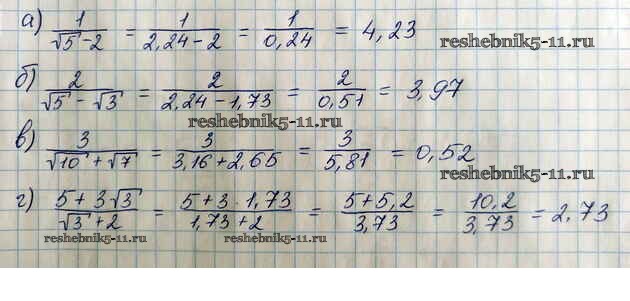 а) 1/(√5-2) = 1/(2,24-2) = 1/0,24 = 4,23
reshebnik5-11.ru
б) 2/(√5-√3) = 2/(2,24-1,73) = 2/0,51 = 3,97
reshebnik5-11.ru
в) 3/(√10+√7) = 3/(3,16+2,65) = 3/5,81 = 0,52
reshebnik5-11.ru
г) (5+3√3)/(√3+2) = (5+3·1,73)/(1,73+2) = (5+5,2)/3,73 = 10,2/3,73 = 2,73
reshebnik5-11.ru reshebnik5-11.ru